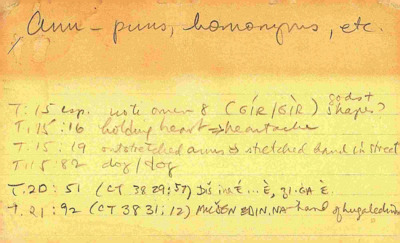 Ann – puns, homonyms, etc.
T. 15 esp. note omen 8 (GÍR/GÌR) gods + shapes?
T. 15 : 16 holding heart → heartache
T. 15 : 19 outstretched arms → stretched hand in street
T. 15 : 82 dog / dog
T. 20 : 51 (CT 38 29:57) DIŠ ina É ... È, ZI.GA È.
T. 21 : 92 (CT 38 31:12) MUŠEN EDIN.NA hand of